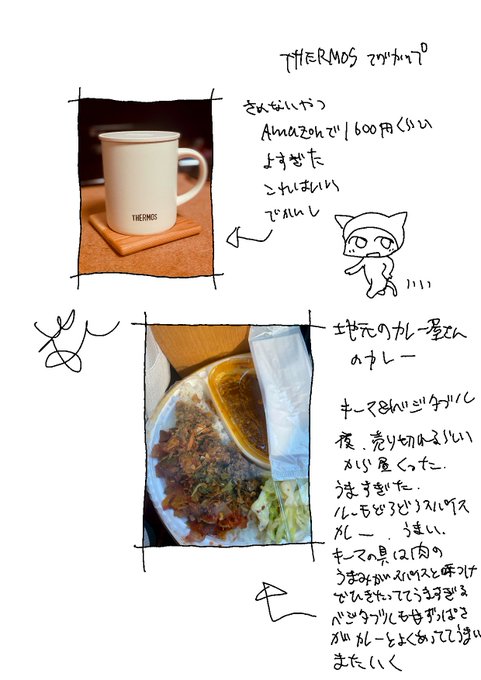 THERMOS マグカップ
さめないやつ
Amazonで1600円くらい
よすぎた
これはいい
でかいし
THERMOS
地元のカレー屋さん
のカレー
キーマ&ベジタブル
夜、売り切れるらしい
から昼くった.
うますぎた.
ルーもどろどろスパイス
カレー、うまい.
キーマの具は肉の
うまみがスパイスと味つけ
でひきたっててうますぎる
ベジタブルもすっぱさ
がカレーとよくあっててうまい
またいく